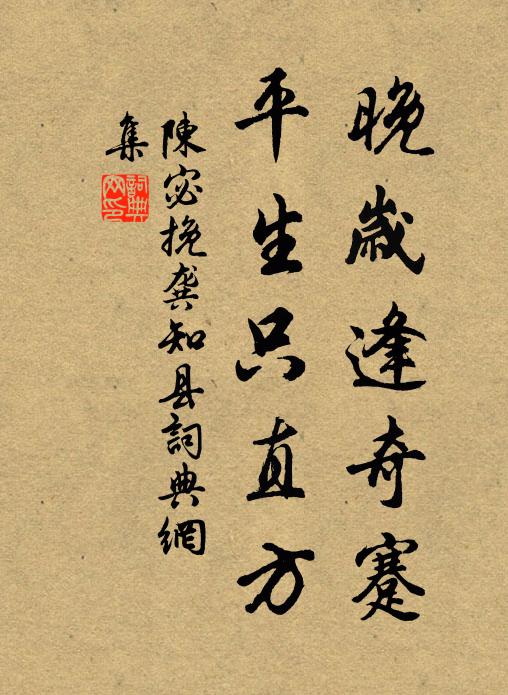 晚歲逢奇蹇
平生只直方
陳宓挽龔知县詞典網
集
詞典网印